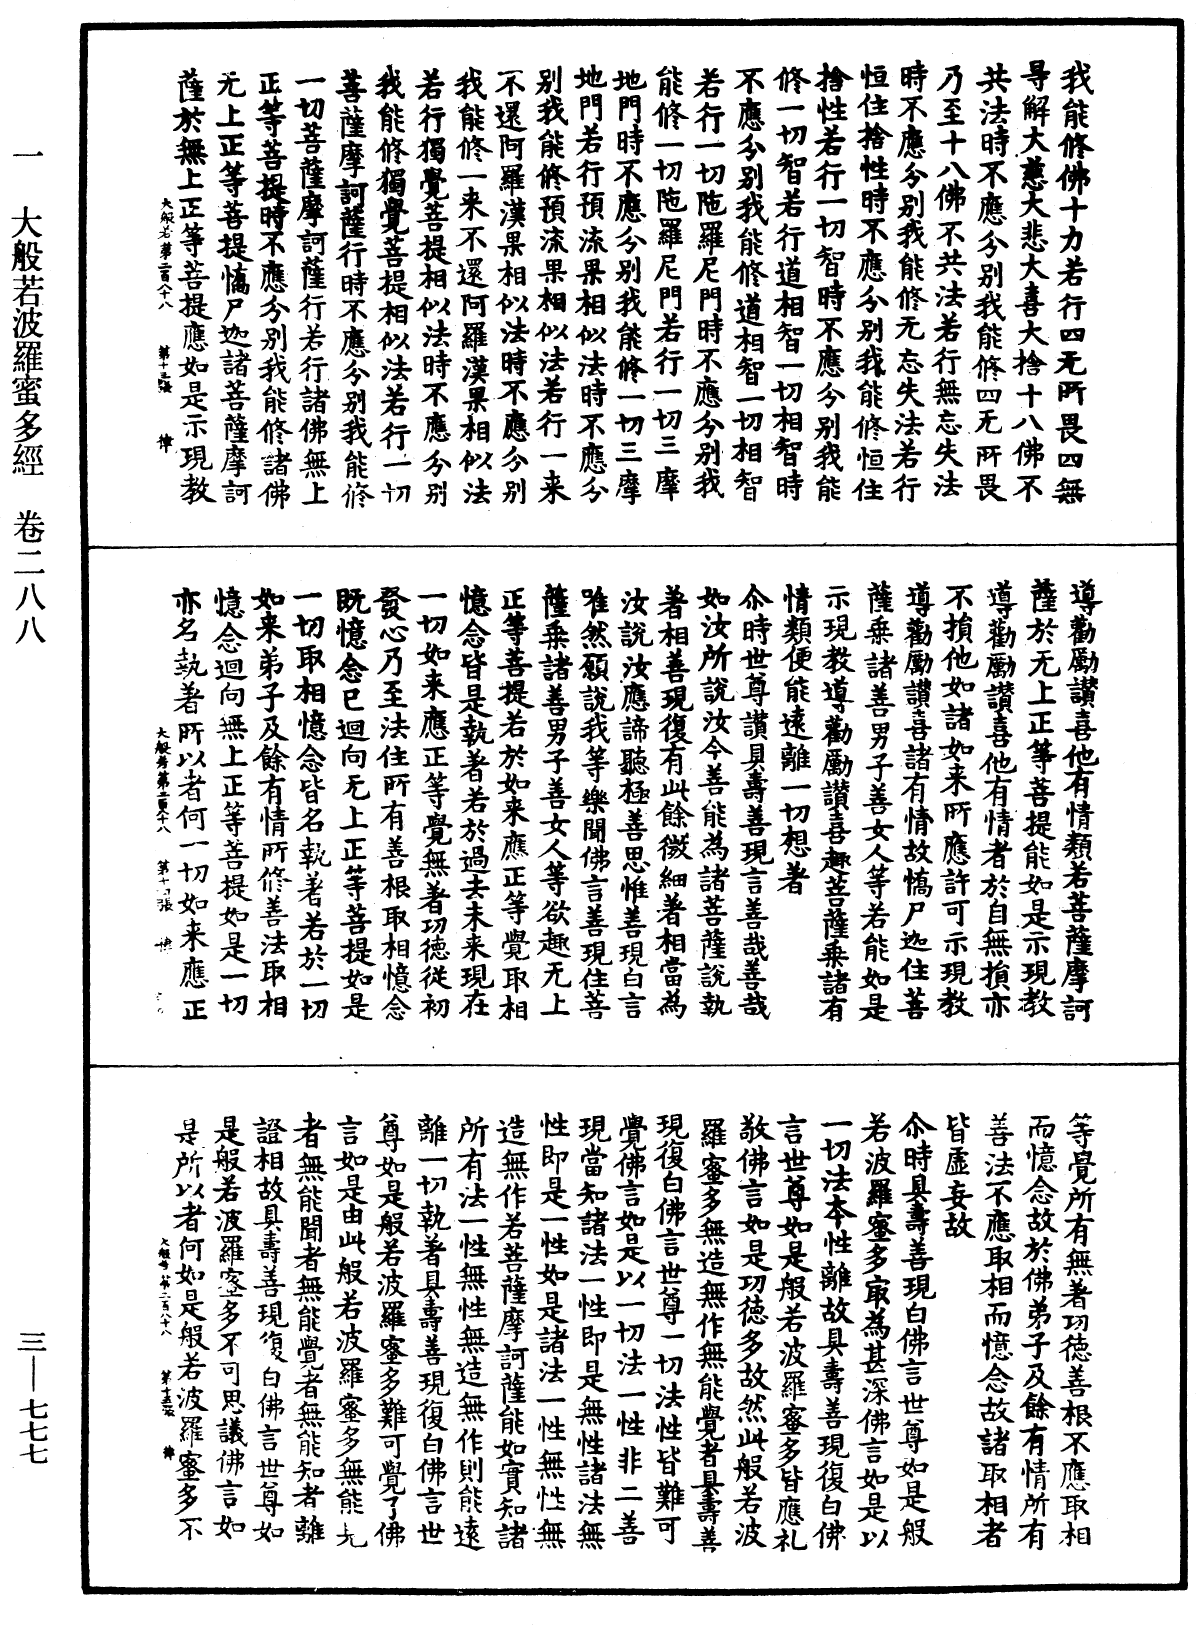 一 大般若波羅蜜多經 卷二八八
三—七七七
我能修佛十力若行四无所畏四無
㝵解大慈大悲大喜大捨十八佛不
共法時不應分別我能修四无所畏
乃至十八佛不共法若行無忘失法
時不應分別我能修无忘失法若行
恒住捨性時不應分別我能修恒住
捨性若行一切智時不應分別我能
修一切智若行道相智一切相智時
不應分別我能修道相智一切相智
若行一切陁羅尼門時不應分別我
能修一切陁羅尼門若行一切三摩
地門時不應分別我能修一切三摩
地門若行預流果相似法時不應分
別我能修預流果相似法若行一来
不還阿羅漢果相似法時不應分別
我能修一来不還阿羅漢果相似法
若行獨覺菩提相似法時不應分別
我能修獨覺菩提相似法若行一切
菩薩摩訶薩行時不應分別我能修
一切菩薩摩訶薩行若行諸佛無上
正等菩提時不應分別我能修諸佛
无上正等菩提憍尸迦諸菩薩摩訶
薩於無上正等菩提應如是示現教
大般若第二百八十八 第十三張
導勸勵讃喜他有情類若菩薩摩訶
薩於无上正等菩提能如是示現教
導勸勵讃喜他有情者於自無損亦
不損他如諸如来所應許可示現教
導勸勵讃喜諸有情故憍尸迦住菩
薩乗諸善男子善女人等若能如是
示現教導勸勵讃喜趣菩薩乗諸有
情類便能遠離一切想著
尒時世尊讃具壽善現言善哉善哉
如汝所說汝今善能為諸菩薩說執
著相善現復有此餘微細著相當為
汝說汝應諦聽極善思惟善現白言
唯然願說我等樂聞佛言善現住菩
薩乗諸善男子善女人等欲趣无上
正等菩提若於如来應正等覺取相
憶念皆是執著若於過去未来現在
一切如来應正等覺無著功德從初
發心乃至法住所有善根取相憶念
既憶念已迴向无上正等菩提如是
一切取相憶念皆名執著若於一切
如来弟子及餘有情所修善法取相
憶念迴向無上正等菩提如是一切
亦名執著所以者何一切如来應正
大般若第二百八十八 第十四張
等覺所有無著功德善根不應取相
而憶念故於佛弟子及餘有情所有
善法不應取相而憶念故諸取相者
皆虛妄故
尒時具壽善現白佛言世尊如是般
若波羅蜜多㝡為甚深佛言如是以
一切法本性離故具壽善現復白佛
言世尊如是般若波羅蜜多皆應礼
敬佛言如是功德多故然此般若波
羅蜜多無造無作無能覺者具壽善
現復白佛言世尊一切法性皆難可
覺佛言如是以一切法一性非二善
現當知諸法一性即是無性諸法無
性即是一性如是諸法一性無性無
造無作若菩薩摩訶薩能如實知諸
所有法一性無性無造無作則能遠
離一切執著具壽善現復白佛言世
尊如是般若波羅蜜多難可覺了佛
言如是由此般若波羅蜜多無能見
者無能聞者無能覺者無能知者離
證相故具壽善現復白佛言世尊如
是般若波羅蜜多不可思議佛言如
是所以者何如是般若波羅蜜多不
大般若第二百八十八 第十五張